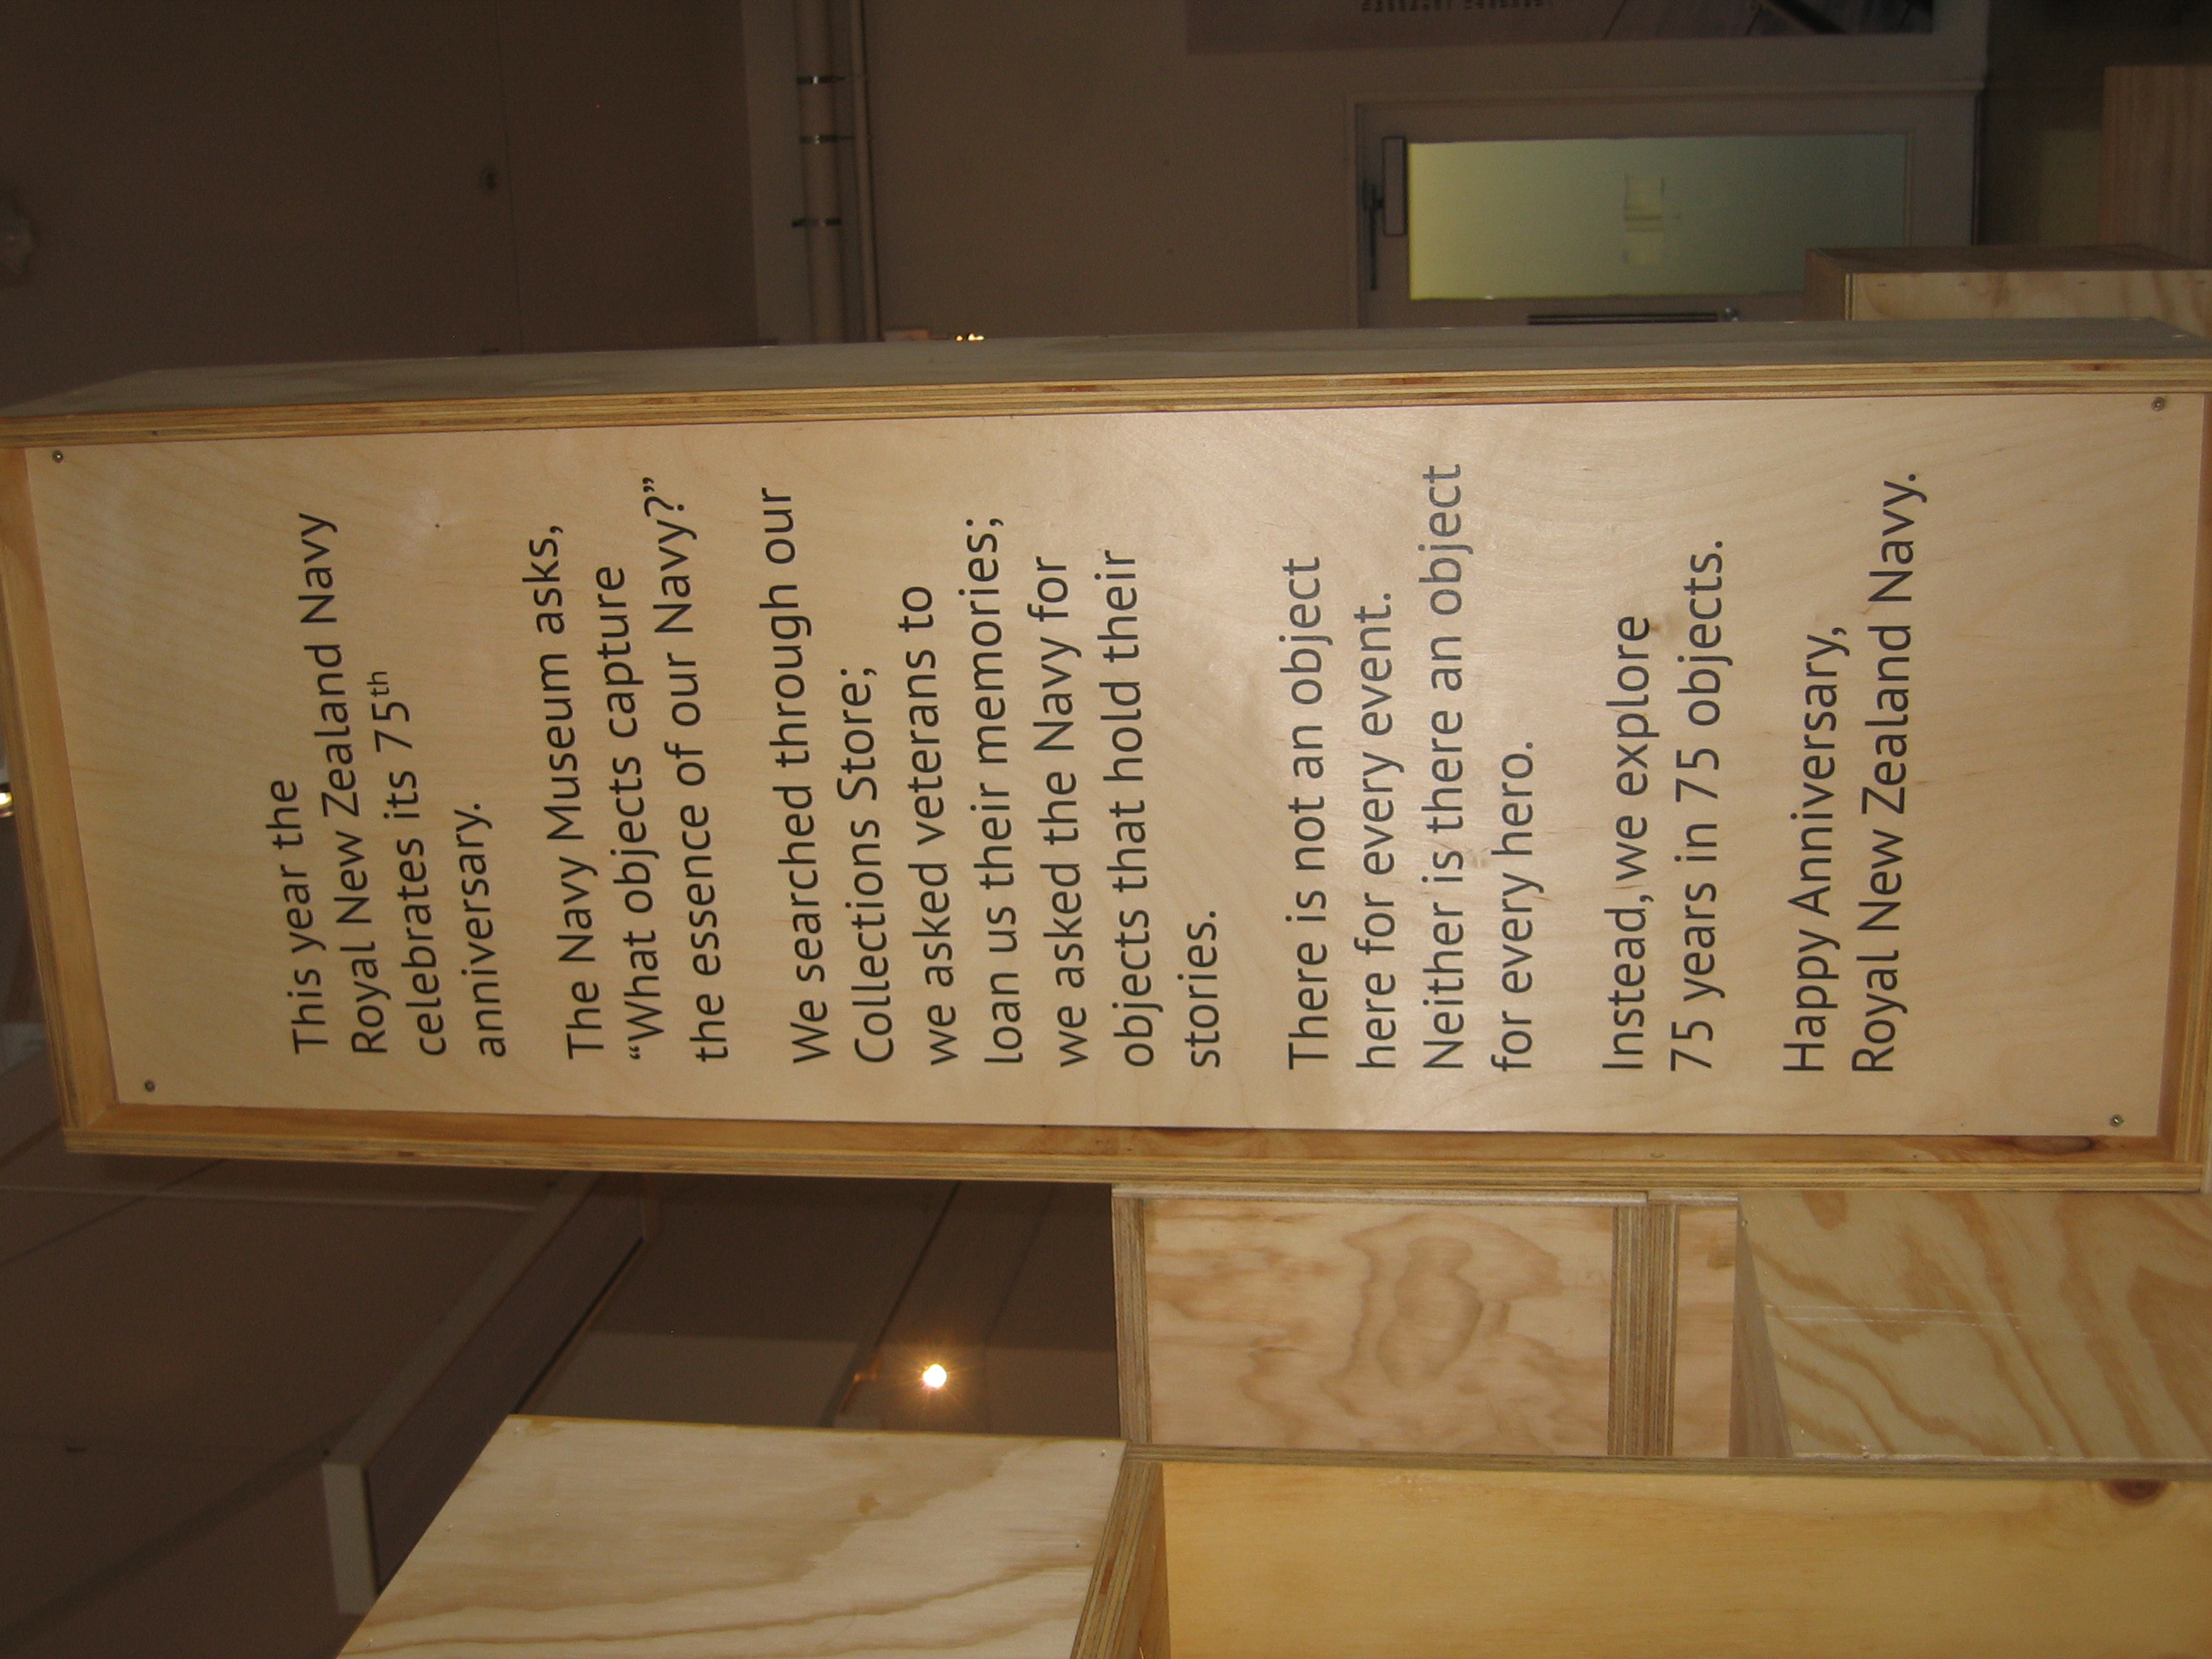 This year the
Royal New Zealand Navy
celebrates its 75th
anniversary.
The Navy Museum asks,
“What objects capture
the essence of our Navy?”
We searched through our
Collections Store;
we asked veterans to
loan us their memories;
we asked the Navy for
objects that hold their
stories.
There is not an object
here for every event.
Neither is there an object
for every hero.
Instead, we explore
75 years in 75 objects.
Happy Anniversary,
Royal New Zealand Navy.